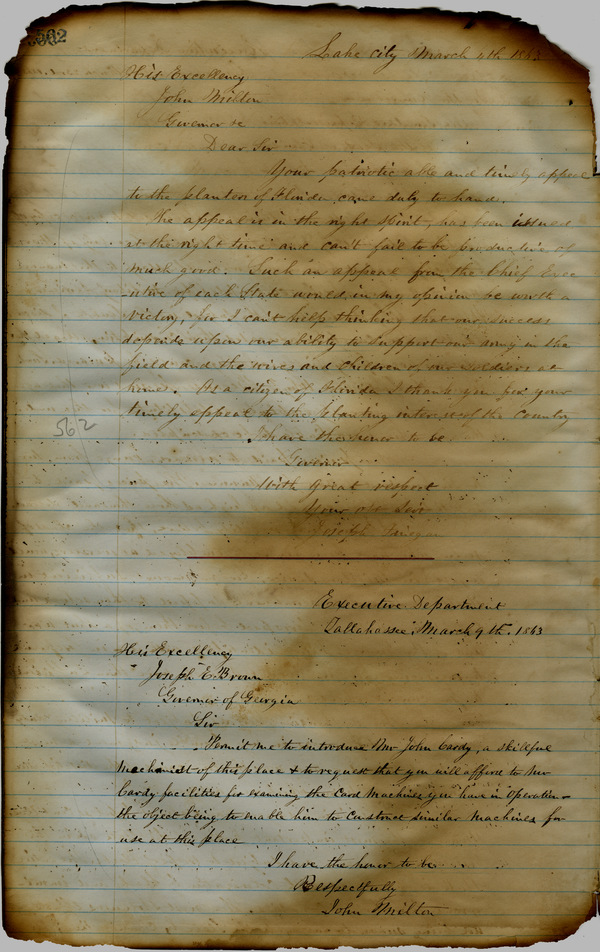 Lake City March 4th 1863
His Excellency
John Milton
Governor &c
Dear Sir
Your patriotic able and timely appeal
to the planters of Florida, came duly to hand.
The appeal is in the right spirit, has been issued
at the right time and can't fail to be productive of
much good. Such an appeal from the Chief Exec
-utive of each State would in my opinion be worth a
victory, for I can't help thinking that our success
depends upon our ability to support our army in the
field and the wives and children of our soldiers at
home. As a citizen of Florida I thank you for your
timely appeal to the planting interest of the Country
562
I have the honor to be
Governor
With great respect
Your obt Servt
Joseph Finegan
Executive Department
Tallahassee, March 9th. 1863
His Excellency
Joseph E. Brown
Governor of Georgia
Sir
Permit me to introduce Mr John Cardy, a skillful
Machinist of this place & to request that you will afford to Mr
Cardy facilities for examining the Card Machines you have in operation -
the object being to enable him to construct similar Machines for
use at this place
I have the honor to be
Respectfully
John Milton